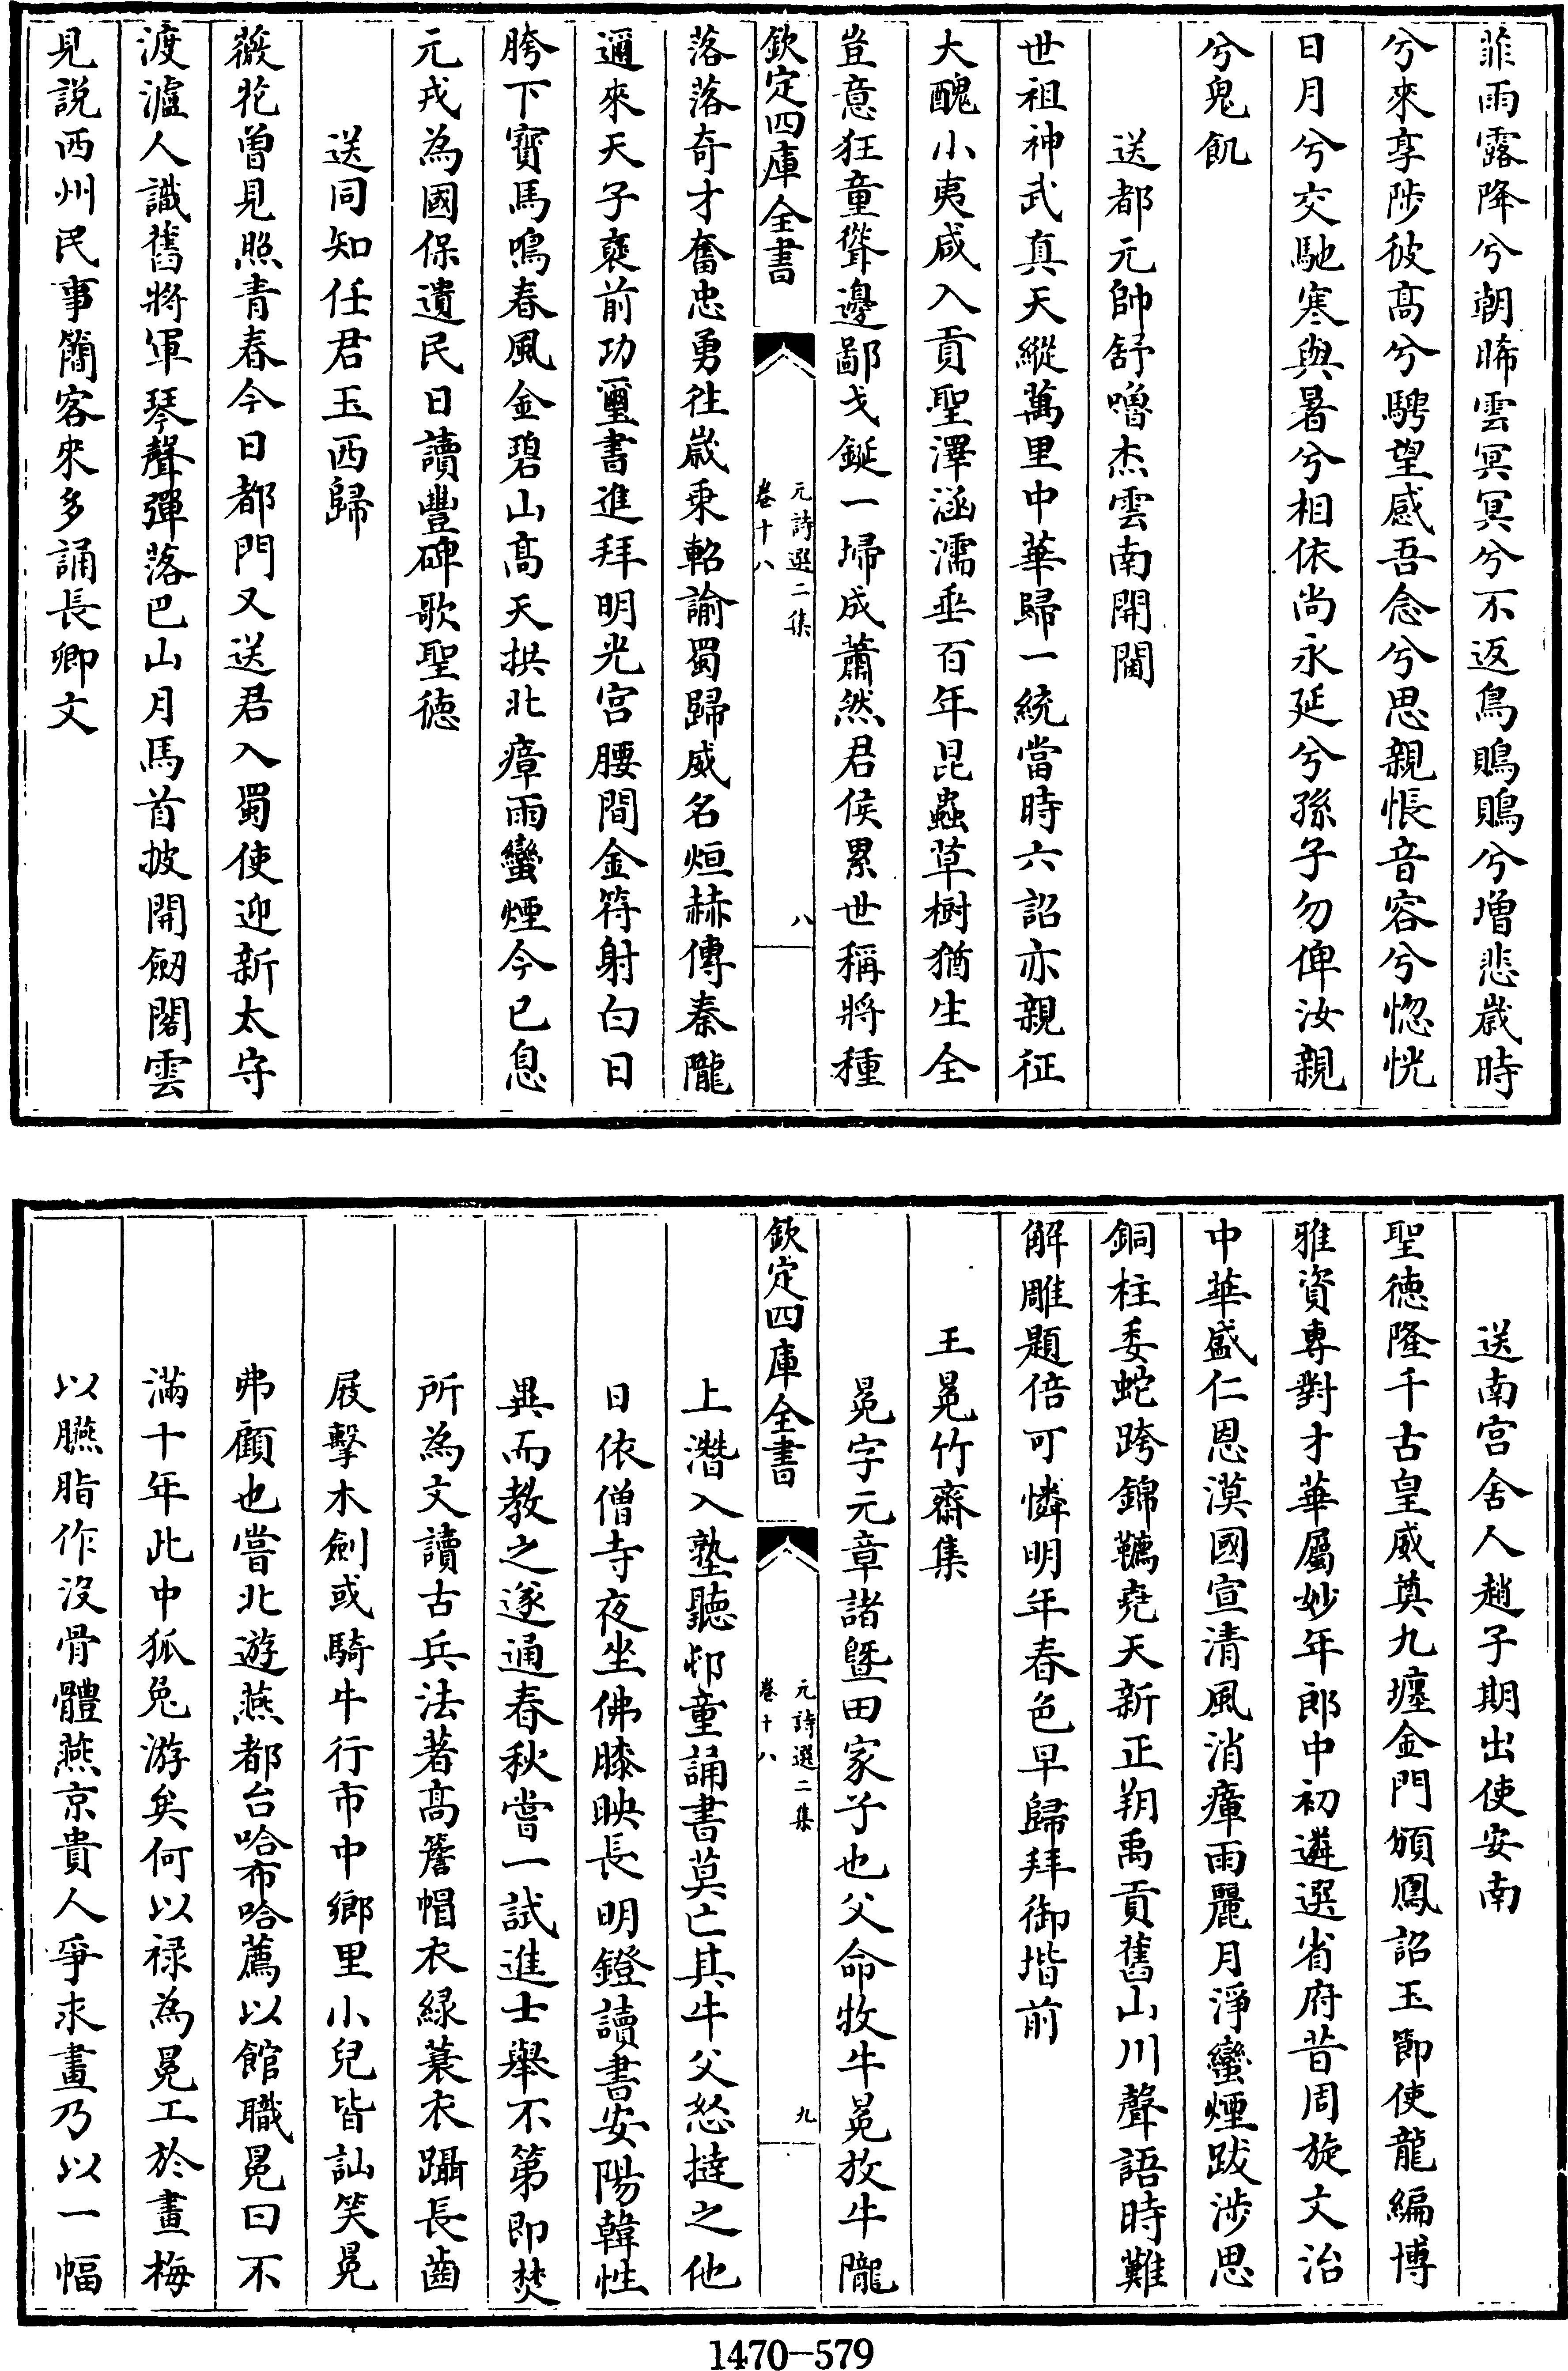 菲雨露降兮朝晞雲冥冥兮不返鳥鵙鵙兮增悲歲時
兮來享陟彼高兮騁望感吾念兮思親悵音容兮惚恍
日月兮交馳寒與暑兮相依尚永延兮孫子勿俾汝親
兮鬼飢
送都元帥舒嚕杰雲南開閫
世祖神武真天縱萬里中華歸一統當時六詔亦親征
大醜小夷咸入貢聖澤涵濡垂百年昆蟲草樹猶生全
豈意狂童聳邊鄙戈鋋一埽成蕭然君侯累世稱將種
欽定四庫全書
元詩選二集
卷十八
八
落落奇才奮忠勇往歲乘軺諭蜀歸威名烜赫傳秦隴
邇來天子褒前功璽書進拜明光宮腰間金符射白日
胯下寶馬鳴春風金碧山高天拱北瘴雨蠻煙今已息
元戎為國保遺民日讀豐碑歌聖德
送同知任君玉西歸
薇花曾見照青春今日都門又送君入蜀使迎新太守
渡瀘人識舊將軍琴聲彈落巴山月馬首披開劒閣雲
見說西州民事簡客來多誦長卿文
送南宮舍人趙子期出使安南
聖德隆千古皇威奠九㕓金門頒鳳詔玉節使龍編博
雅資專對才華屬妙年郎中初遴選省府昔周旋文治
中華盛仁恩漠國宣清風消瘴雨麗月淨蠻煙跋涉思
銅柱委蛇跨錦韉堯天新正朔禹貢舊山川聲語時難
解雕題倍可憐明年春色早歸拜御堦前
王冕竹齋集
冕字元章諸暨田家子也父命牧牛冕放牛隴
欽定四庫全書
元詩選二集
卷十八
九
上潛入塾聽邨童誦書莫亡其牛父怒撻之他
日依僧寺夜坐佛膝映長明鐙讀書安陽韓性
異而教之遂通春秋嘗一試進士舉不第即焚
所為文讀古兵法著高簷帽衣綠蓑衣躡長齒
屐擊木劍或騎牛行市中鄉里小兒皆訕笑冕
弗顧也嘗北遊燕都台哈布哈薦以館職冕曰不
滿十年此中狐兔游矣何以祿為冕工於畫梅
以臙脂作沒骨體燕京貴人爭求畫乃以一幅
1470-579